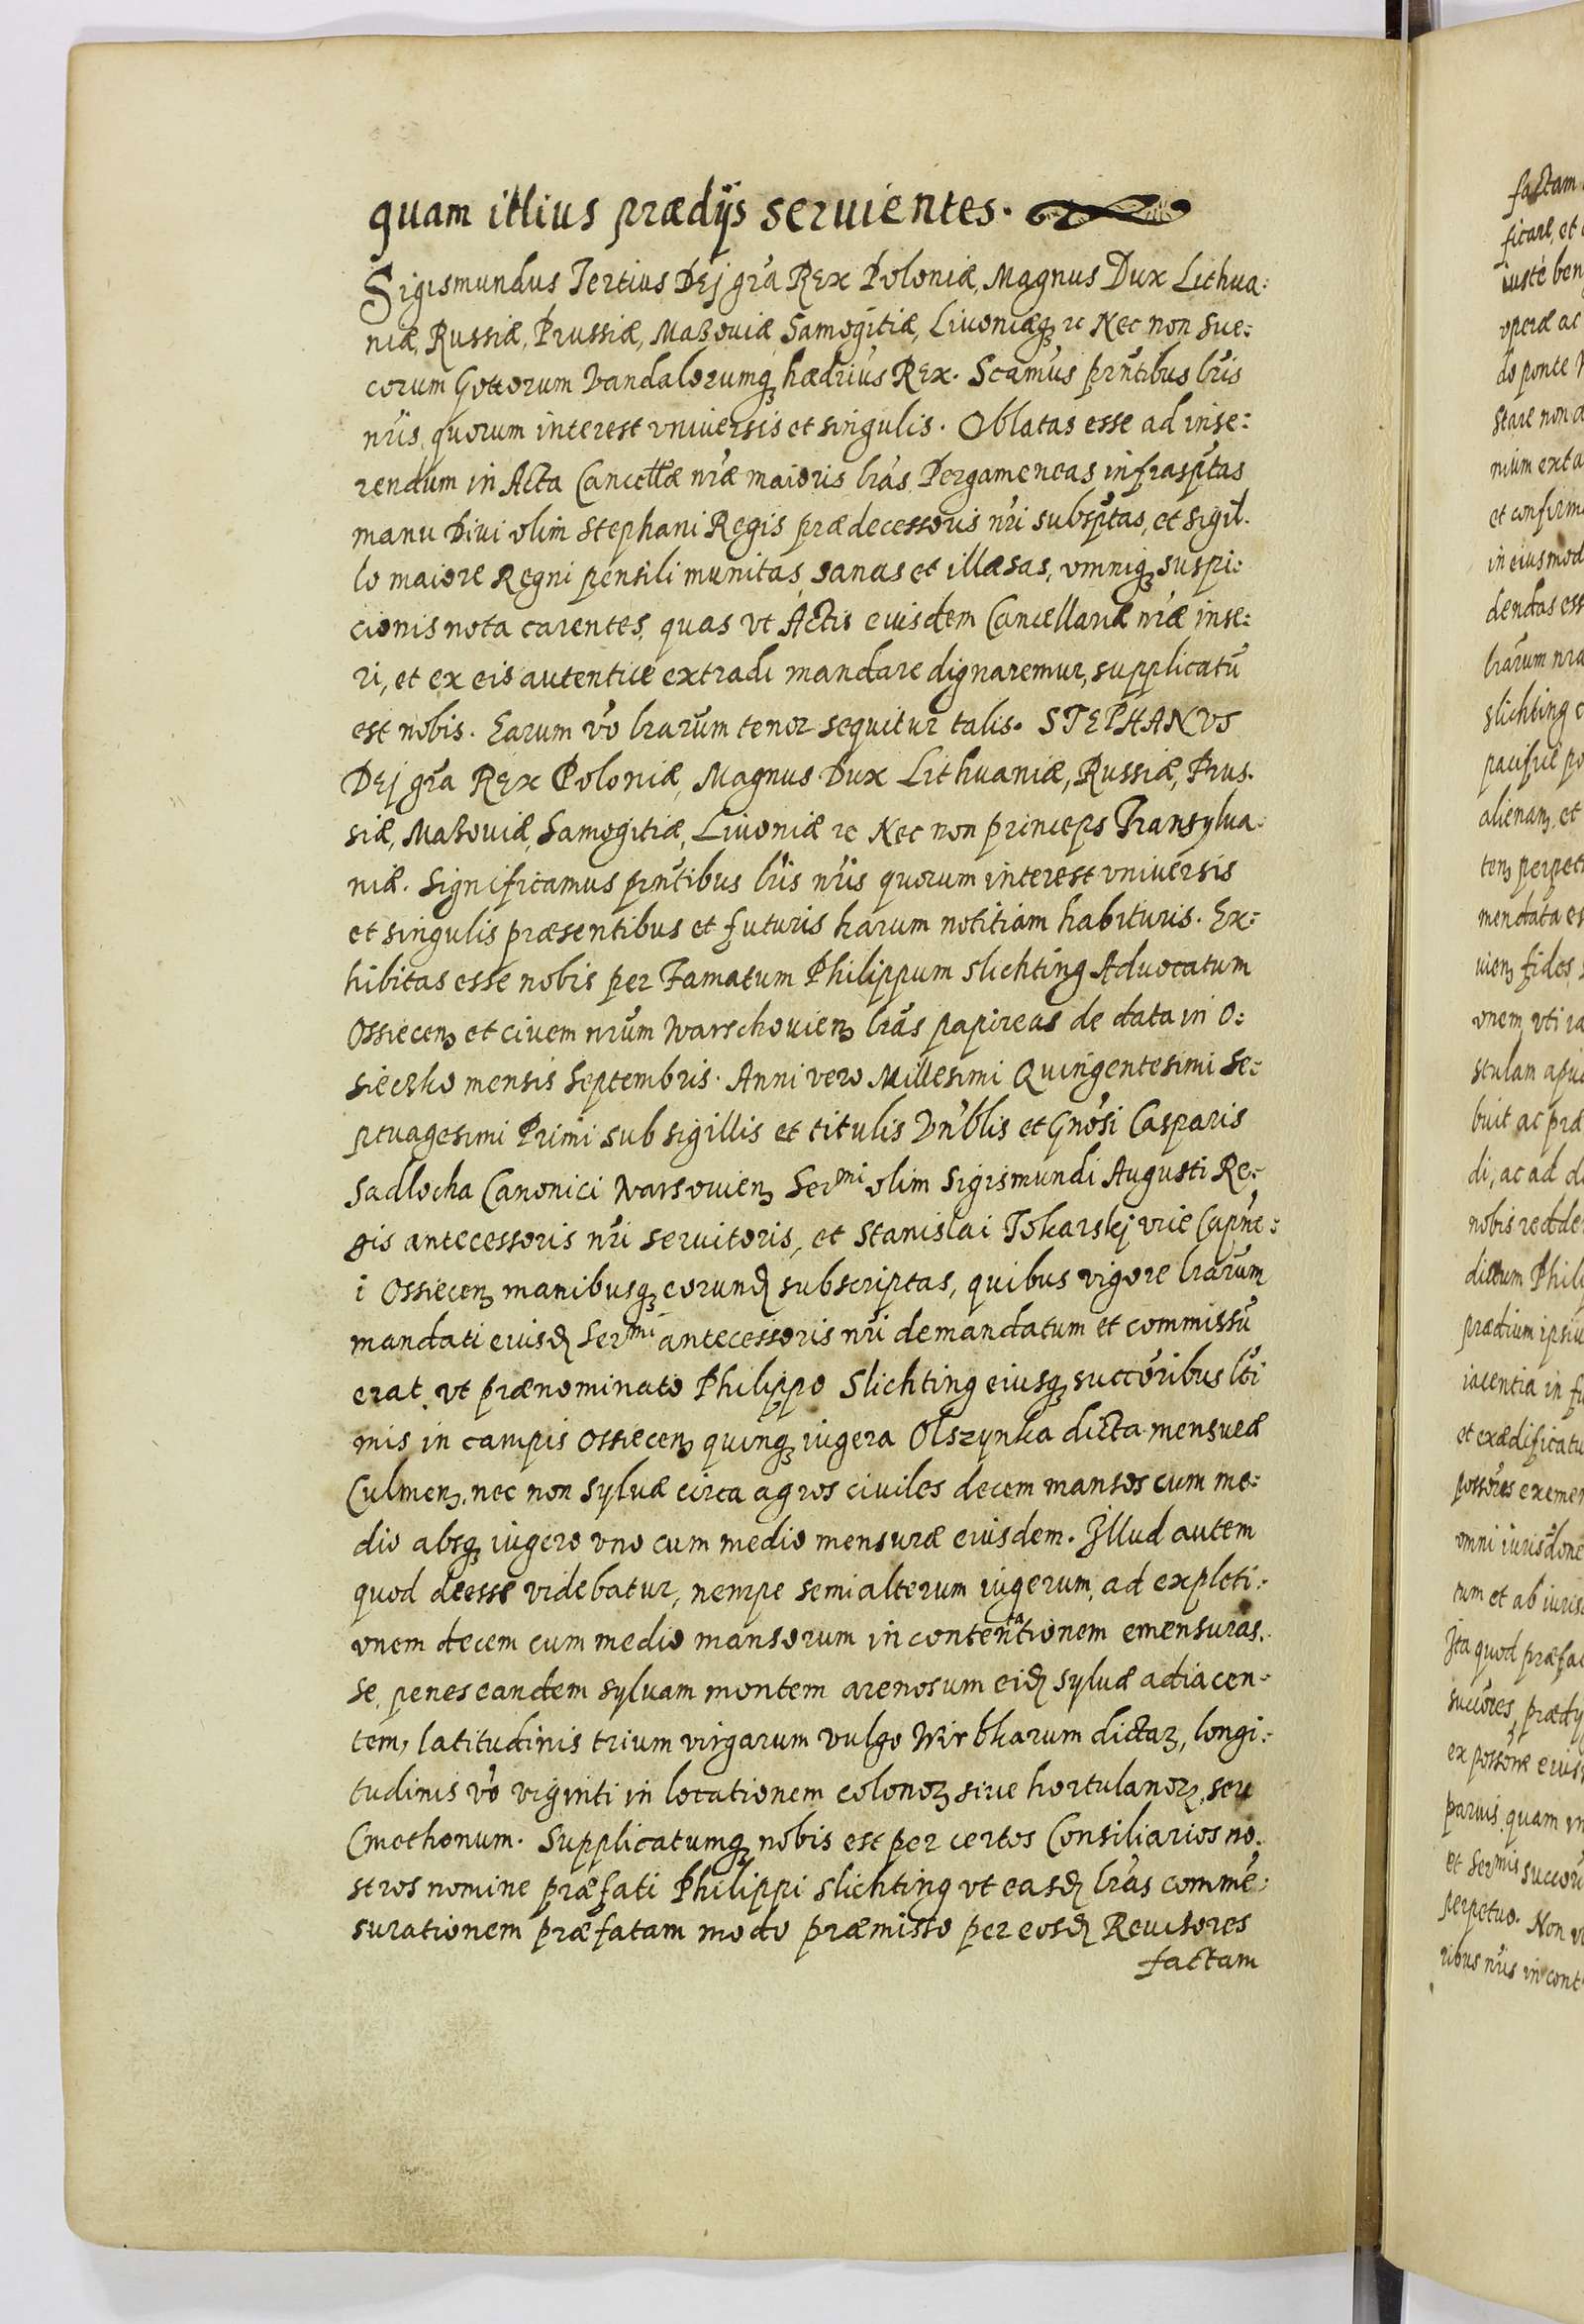 quam illius prædijs seruientes.
Sigismundus Tertius Dej gra Rex Poloniæ, Magnus Dux Lithua:
niæ, Russiæ, Prussiæ, Mazouiæ, Samogitiæ, Liuoniæq; rc Nec non Sue:
corum Gottorum Vandalorumq; hædrius Rex. Scamus pntibus lris
nris quorum interest vniuersis et singulis. Oblatas esse ad inse:
rendum in Acta Cancellæ nræ maioris lras Pergameneas infrasptas
manu Diui olim Stephani Regis prædecessoris nri subsptas, et sigil.
lo maiore Regni pensili munitas, sanas et illæsas, omniq; suspi:
cionis nota carentes, quas vt Actis eiusdem Cancellariæ nræ inse:
ri, et ex eis autentice extradi mandare dignaremur, supplicatū
est nobis. Earum vo lrarum tenor sequitur talis. STEPHANVS
Dej gra Rex Poloniæ, Magnus Dux Lithuaniæ, Russiæ, Prus.
siæ, Mazouiæ, Samogitiæ, Liuoniæ rc Nec non princeps Transylua:
niæ. Significamus pntibus lris nris quorum interest vniuersis
et singulis præsentibus et futuris harum notitiam habituris. Ex:
hibitas esse nobis per Famatum Philippum Slichting Aduocatum
Ossiecen; et ciuem nrum Warschouien; lras papireas de data in O:
sieczko mensis Septembris. Anni vero Millesimi Quingentesimi Se:
ptuagesimi Primi sub sigillis et titulis Vnblis et Gnosi Casparis
Sadlocha Canonici Warsouien; Sermi olim Sigismundi Augusti Re:
gis antecessoris nri seruitoris, et Stanislai Tokarskj vice Capne:
i Ossiecen; manibusq; eorund subscriptas, quibus vigore lrarum
mandati eiusd Sermi antecessoris nri demandatum et commissū
erat, vt prænominato Philippo Slichting eiusq; succoribus lti
mis in campis Ossiecen; quinq; iugera Olszynka dicta mensuræ
Culmen;, nec non syluæ circa agros ciuiles decem mansos cum me:
dio absq; iugero vno cum medio mensuræ eiusdem. Illud autem
quod deesse videbatur, nempe semialterum iugerum, ad expleti:
onem decem cum medio mansorum in contentationem emensuras.
se, penes eandem syluam montem arenosum eid syluæ adiacen:
tem, latitudinis trium virgarum vulgo Wirbkarum dictar;, longi:
tudinis vo viginti in locationem colonor; siue hortulanor;, seu
Cmethonum. Supplicatumq; nobis est per certos Consiliarios no.
stros nomine præfati Philippi Slichting vt easd lras commē:
surationem præfatam modo præmisso per eosd Reuisores
factam
factam
ficare, et
iuste ben
operæ ac
do ponte
stare non
nium exta
et confirm
in eiusmod
dendas ess
lrarum nra
Slichting
pacifice po
alienan;, et
ten; perpet
mendata es
uien; fides
onem, vti
stulam apu
buit ac præ
di, ac ad d
nobis redde
dictum Phili
prædium ipsiu
iacentia in
et exædificatu
possores exemer
omni iurisdone
rum et ab iuris
Ita quod præfa
succores, prædy
ex possone eius
paruis, quam
et Sermis succor
perpetuo. Non
ribus nris in cont